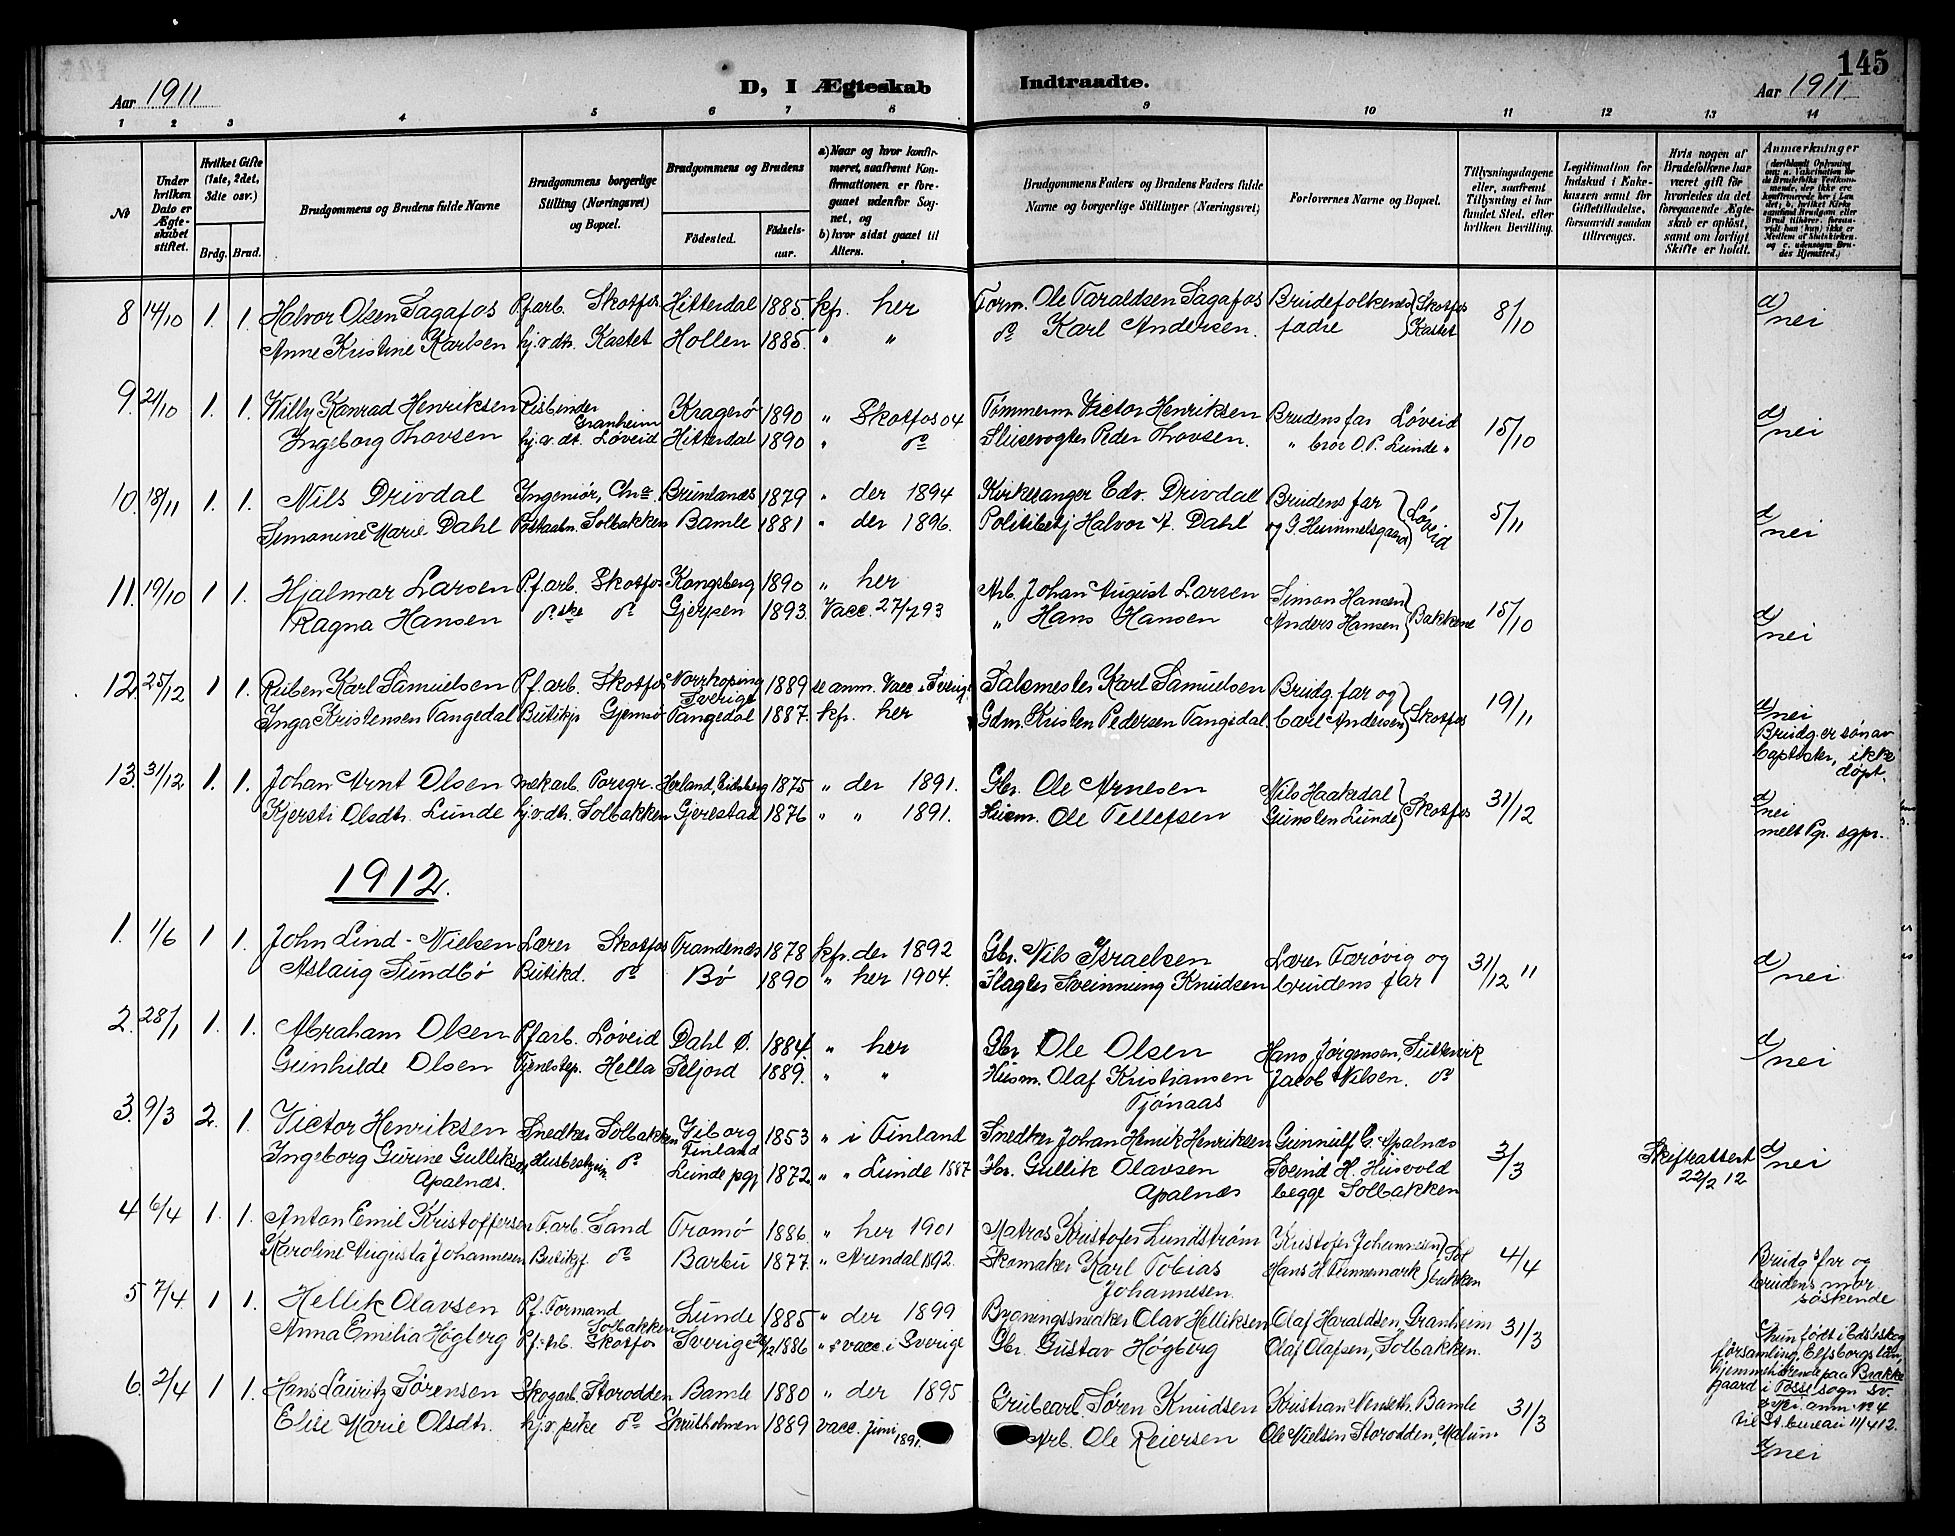 145
Aar 1911
D, I Ægteskab Indtraadte.
Aar 1911
1 2 3 4 5 6 7 8 9 10 11 12 13 14
No
Under hvilken Dato er Ægteskabet stiftet.
Hvilket Gifte (1ste, 2det, 3die osv.)
Brdg. Brud.
Brudgommens og Brudens fulde Navne
Brudgommens borgerlige Stilling (Næringsvei) og Bopæl.
Brudgommens og Brudens
Fødested.
Födselsaar.
a) Naar og hvor konfirmeret, saafremt Konfirmationen er foregaaet udenfor Sognet, og
b) hvor sidst gaaet til Alters.
Brudgommens Faders og Brudens Faders fulde Navne og borgerlige Stillinger (Næringsvei)
Forlovernes Navne og Bopæl.
Tillysningsdagene eller, saafremt Tillysning ei har fundet Sted, efter hvilken Bevilling.
Legitimation for Indskud i Enkekassen samt for Giftetilladelse, forsaavidt saadan tiltrænges.
Hvis nogen af Brudefolkene har været gift før hvorledes da det foregaaende Ægteskab er opløst, samt om lovligt Skifte er holdt.
Anmærkninger
8 14/10 1. 1. Halvor Olsen Sagafos Pf.arb. Skotfos Hitterdal 1885. kf. her Form. Ole Taraldsen Sagafos Brudefolkenes Skotfos 8/10 d/nei
Anne Kristine Karlsen hj.v.dt. Kastet Hollen 1885. " " do Karl Andersen. fædre Kastet
9. 21/10 1. 1. Willy Konrad Henriksen Granheim Kragerø 1890 " Skotfos 04 Tømmerm. Victor Henriksen Brudens far Løveid 15/10 d/nei
Ingeborg Thovsen hj.v.dt. Løveid Hitterdal 1890 " do Slusevogter Peder Thovsen. " bror O.P. Lunde "
10. 18/11 1. 1. Nils Drivdal Ingeniør, Chra. Brunlanæs 1879 " der 1894 Kirkesanger Edv. Drivdal Brudens far Løveid 5/11 d/nei
Simonine Marie Dahl Solbakken Bamle 1881 " der 1896. Politibetj Halvor A. Dahl og G. Hummelsgaard
11. 19/10 1 1. Hjalmar Larsen Pf.arb. Skotfos Kongsberg 1890 " her Arb. Johan August Larsen Simon Hansen Bakkene 15/10 d/nei
Ragna Hansen do.ske do Gjerpen 1893. Vacc. 27/7 93 " Hans Hansen Anders Hansen
12. 25/12 1 1. Ruben Karl Samuelsen Pf.arb. Skotfos Norrkoping Sverige 1889 se anm. Vacc i Sverige Karl Samuelsen Brudg. far og Skotfos 19/11 d/nei
Inga Kristensen Tangedal Butikp Gjemsø Tangedal 1887. kf. her Gdm. Kristen Pedersen Tangedal. Carl Andersen
Brudg. er søn av
baptister, ikke
døpt.
13. 31/12 1. 1. Johan Arnt Olsen mekarb. Porsgr. Herland, Eidsberg 1875 " der 1891. Gbr. Ole Arnesen Nils Haakedal Skotfos 31/12 d/nei
Kjersti Olsdt. Lunde hj.v.dt. Solbakken Gjerestad 1876 " " 1891. Husm. Ole Tellefsen Gunsten Lunde
melt Pgr. sgpr.
1912.
1. 1/6 1 1. John Lind-Nielsen Lærer Skotfos Trandenæs 1878 kf. der 1892 Gbr. Nils Israelsen Lærer Færøvig og 31/12 11 d/nei
Aslaug Sundbø Butikd. do Bø 1890 " her 1904. Slagter Sveinnung Knudsen brudens far
2. 28/1 1. 1. Abraham Olsen Pf.arb. Løveid Dahl Ø. 1884. " her Gbr Ole Olsen Hans Jørgensen, d/nei
Gunhilde Olsen Tjenestep. Hella Seljord 1889. " " Husm. Olaf Kristiansen Tjønaas Jacob Nilsen. do
3. 9/3 2. 1. Victor Henriksen Snedker Solbakken Viborg Finland 1853 " i Finland Snedker Johan Henrik Henriksen Gunnulf G. Apalnæs 3/3 Skifteattest 22/2 12 d/nei
Ingeborg Gurine Gulliksen Apalnæs. Husbestyrin do Lunde pgj 1872 " " Lunde 1887 Gbr. Gullik Olavsen Apalnæs Sveind H. Husvold begge Solbakken
4 6/4 1. 1. Anton Emil Kristoffersen F.arb. Sand Tromø 1886. " her 1901 Matros Kristofer Lundstrøm Kristofer Johannesen Solbakken 4/4
Karoline Augusta Johannesen Butikpf. do Barbu 1877. " Arendal 1892. Skomaker Karl Tobias Johannesen. Hans H. Tennemark
Brudgs far og
brudens mor
søskende
5 7/4. 1 1. Hellik Olavsen Pf. Formand Solbakken Lunde 1885 " der 1899 Bygningssnedker Olav Helliksen Olaf Haraldsen, Granheim 31/3
Anna Emilia Høgberg Pf. arb. Skotfos Sverige 1886 " & vacc. i Sverige Gbr. Gustav Høgberg Olaf Olafsen, Solbakken.
hun født i Edsleskog
församling, Elfsborgs län,
hjemmehørende paa Brakke
gaard i Tösse sogn Sv.
til St. bureau 11/4 12.
6. 2/4 1 1. Hans Lauritz Sørensen Skogarb. Storodden Bamle 1880 " der 1895 Grubearb. Søren Knudsen Kristian Nenseth. Bamle 31/3 d/nei
Elise Marie Olsdt. hj.v. pike do 1889 vacc. Juni 1891. Arb. Ole Reiersen Ole Nielsen Storodden, Melum